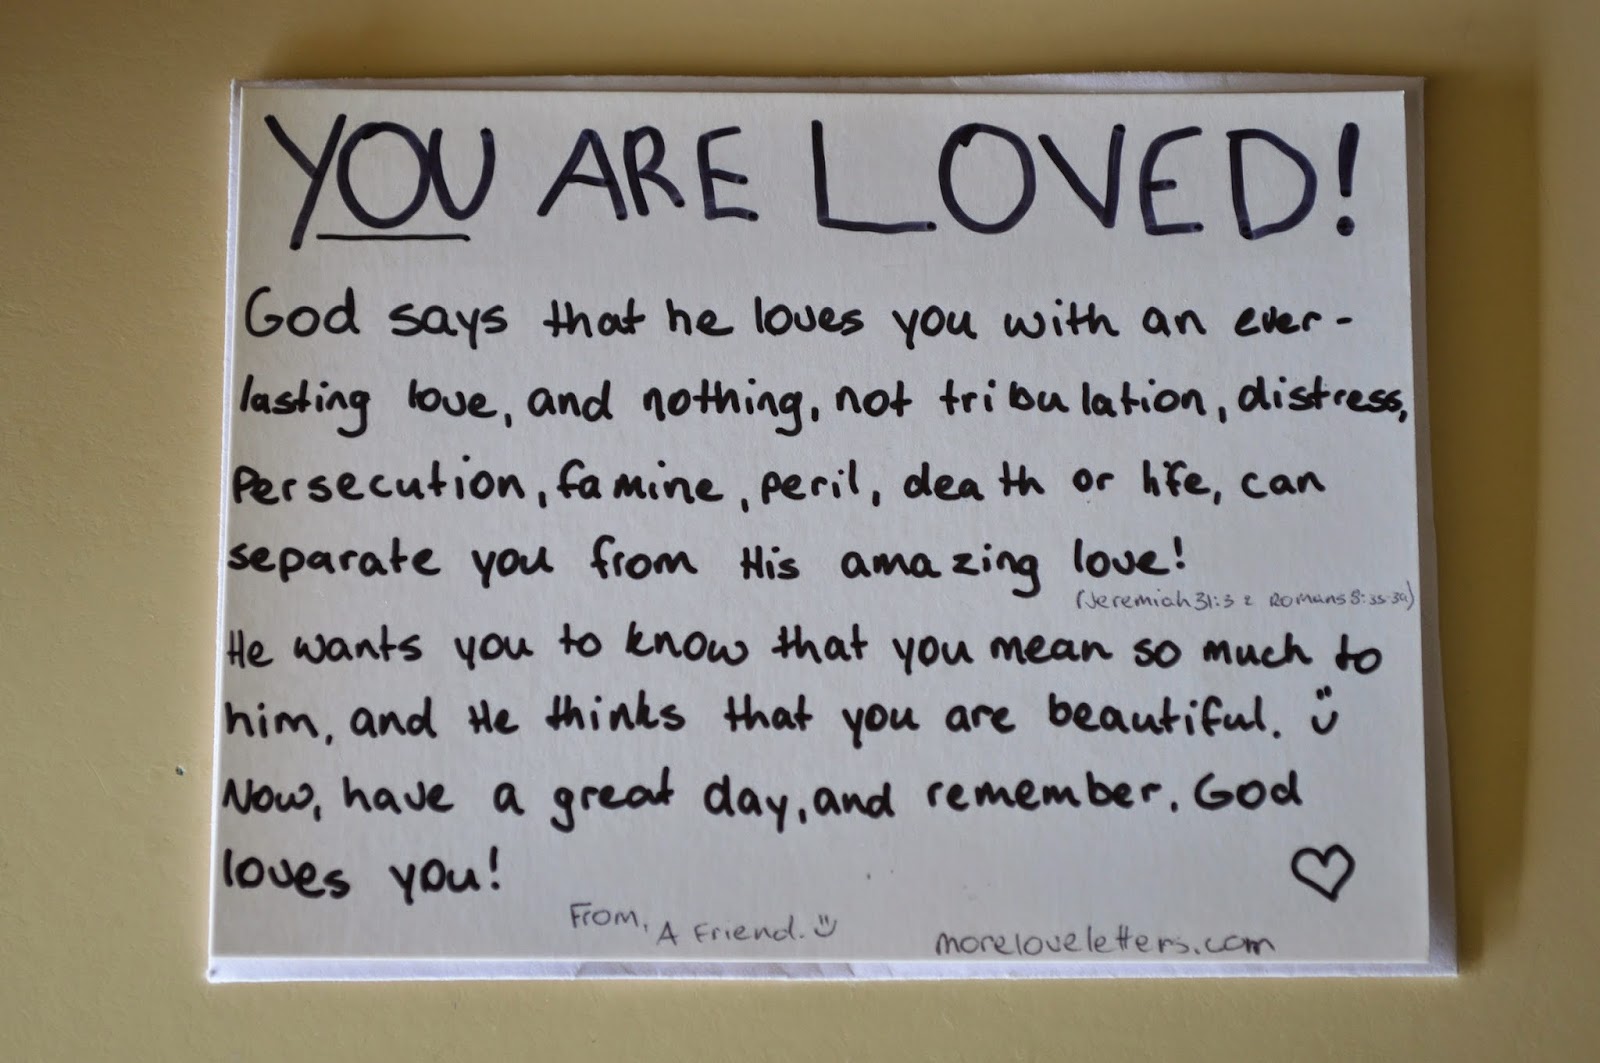 YOU ARE LOVED!
God says that he loves you with an ever-
lasting love, and nothing, not tribulation, distress,
persecution, famine, peril, death or life, can
separate you from His amazing love!
(Jeremiah 31:3 & Romans 8:35-39)
He wants you to know that you mean so much to
him, and He thinks that you are beautiful.
Now, have a great day, and remember, God
loves you!
From, A Friend.
moreloveletters.com